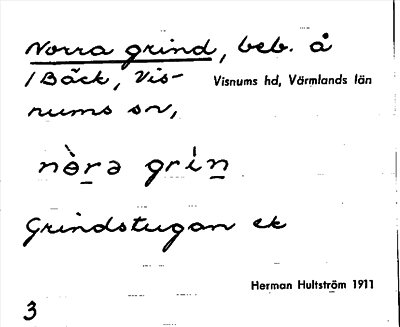 Norra grind, beb. å
1 Bäck, Vis- Visnums hd, Värmlands län
nums sn,
nò̱rə grìn̲
Grindstugan ek
Herman Hultström 1911
3